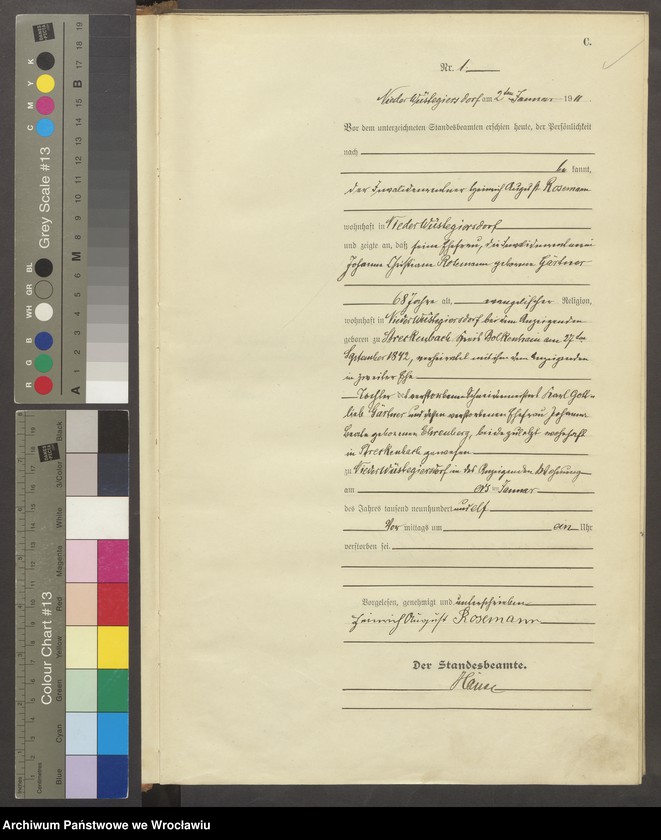 C.
Nr. 1
Nieder Wüstegiersdorf am 2ten Januar 1911
Vor dem unterzeichneten Standesbeamten erschien heute, der Persönlichkeit
nach
be kannt,
der Invalidenrentner Heinrich August Rosemann
wohnhaft in Nieder Wüstegiersdorf
und zeigte an, daß seine Ehefrau, die
Johanne Christiane Rosemann geborene Gärtner
68 Jahre alt, evangelischer Religion,
wohnhaft in Nieder Wüstegiersdorf bei dem Anzeigenden
geboren zu Streckenbach Kreis Bolkenhain am 27ten
September 1842, verheiratet mit dem Anzeigenden
in zweiter Ehe
Tochter des verstorbenen Karl Gott-
lieb Gärtner und dessen verstorbenen Ehefrau Johanne
Beate geborenen beide zuletzt wohnhaft
in Streckenbach gewesen
zu Nieder Wüstegiersdorf in des Anzeigenden Wohnung
am Januar
des Jahres tausend neunhundert und elf
Vor mittags um ein Uhr
verstorben sei.
Vorgelesen, genehmigt und unterschrieben
Heinrich August Rosemann
Der Standesbeamte.
Grey Scale #13
C M Y K
R G B WH GR BL
A 1 2 3 4 5 6 M 8 9 10 11 12 13 14 15 B 17 18 19
Colour Chart #13
Blue Cyan Green Yellow Red Magenta White 3/Color Black
Archiwum Państwowe we Wrocławiu